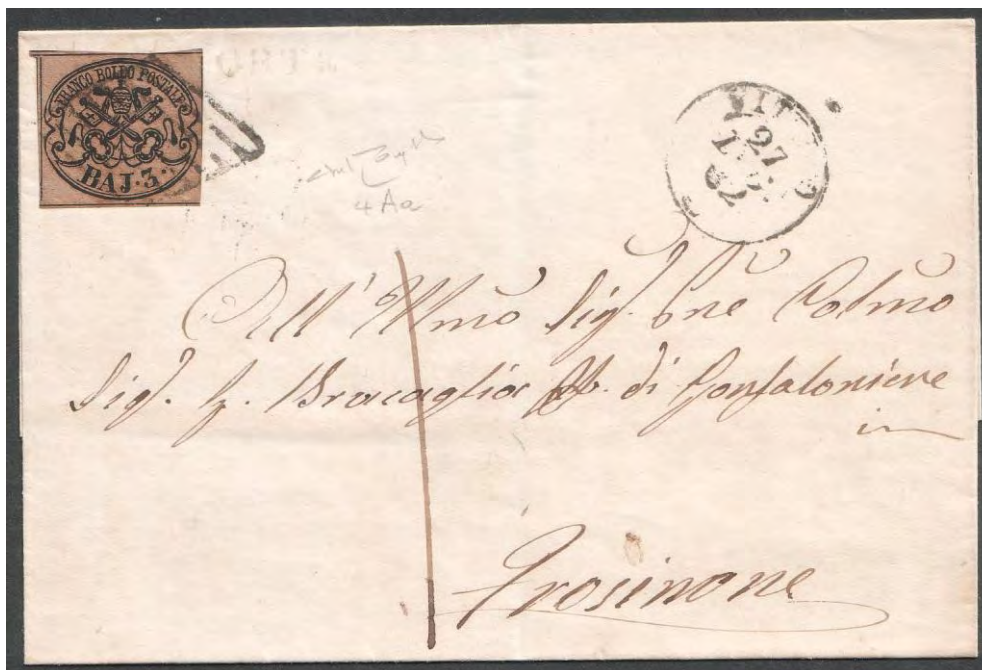 FRANCO BOLLO POSTALE
BAJ. 3.
27
4 Aa
All' Illmo Sig. Pne Colmo
Sig. G. Bracaglia ff. di Gonfaloniere
in
Frosinone